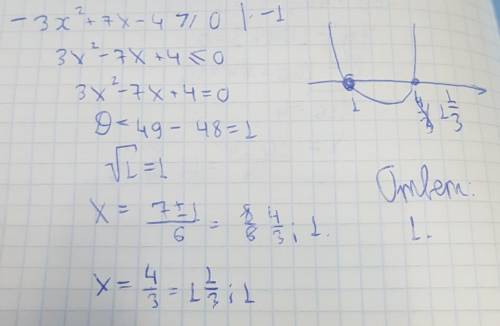 -3x²+7x-4 ⩾ 0 |:-1
3x²-7x+4 ≤ 0
3x²-7x+4=0
D = 49 - 48 = 1
√1 = 1
x = 7±1/6 = 8/6 4/3; 1.
x = 4/3 = 1 1/3; 1
1
1 1/3
Ответ:
1.